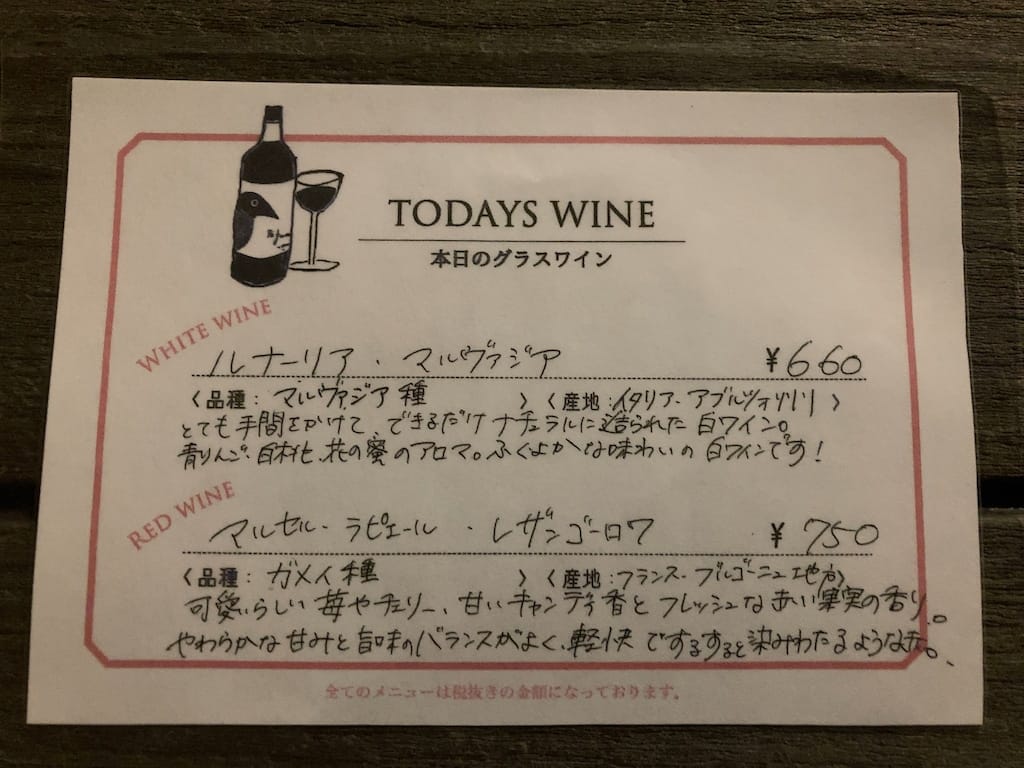 TODAYS WINE
本日のグラスワイン
WHITE WINE
ルナーリア・マルヴァジア ¥660
〈品種: マルヴァジア種 〉〈産地: イタリア・アブルッツォ州 〉
とても手間をかけて、できるだけナチュラルに造られた白ワイン。
青りんご、白桃、花の蜜のアロマ。ふくよかな味わいの白ワインです!
RED WINE
マルセル・ラピエール・レザンゴーロワ ¥750
〈品種: ガメイ種 〉〈産地: フランス・ブルゴーニュ地方〉
可愛らしい苺やチェリー、甘いキャンディ香とフレッシュな赤い果実の香り。
やわらかな甘みと旨味のバランスがよく、軽快でするすると染みわたるような
全てのメニューは税抜きの金額になっております。